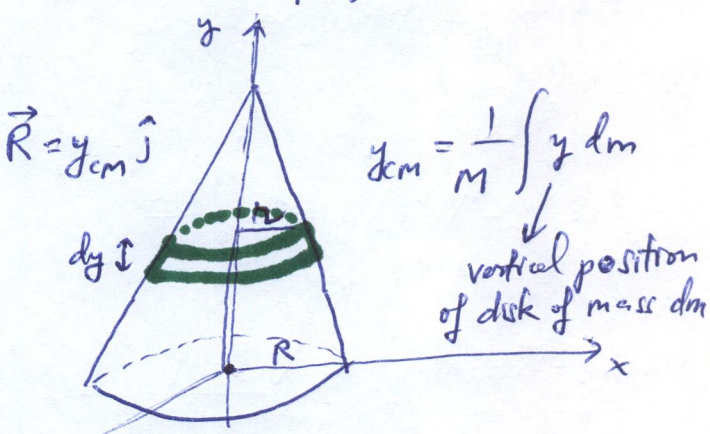 y
R⃗ = y_cm ĵ
y_cm = 1/M ∫ y dm
r
dy ↕
vertical position
of disk of mass dm
R
x